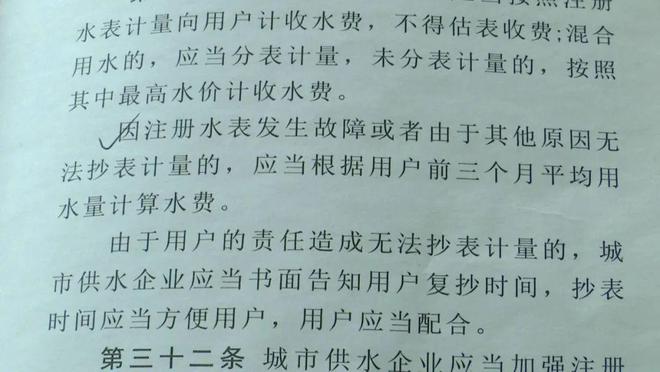 按照注册
水表计量向用户计收水费，不得估表收费；混合
用水的，应当分表计量，未分表计量的，按照
其中最高水价计收水费。
因注册水表发生故障或者由于其他原因无
法抄表计量的，应当根据用户前三个月平均用
水量计算水费。
由于用户的责任造成无法抄表计量的，城
市供水企业应当书面告知用户复抄时间，抄表
时间应当方便用户，用户应当配合。
第三十二条 城市供水企业应当加强注册